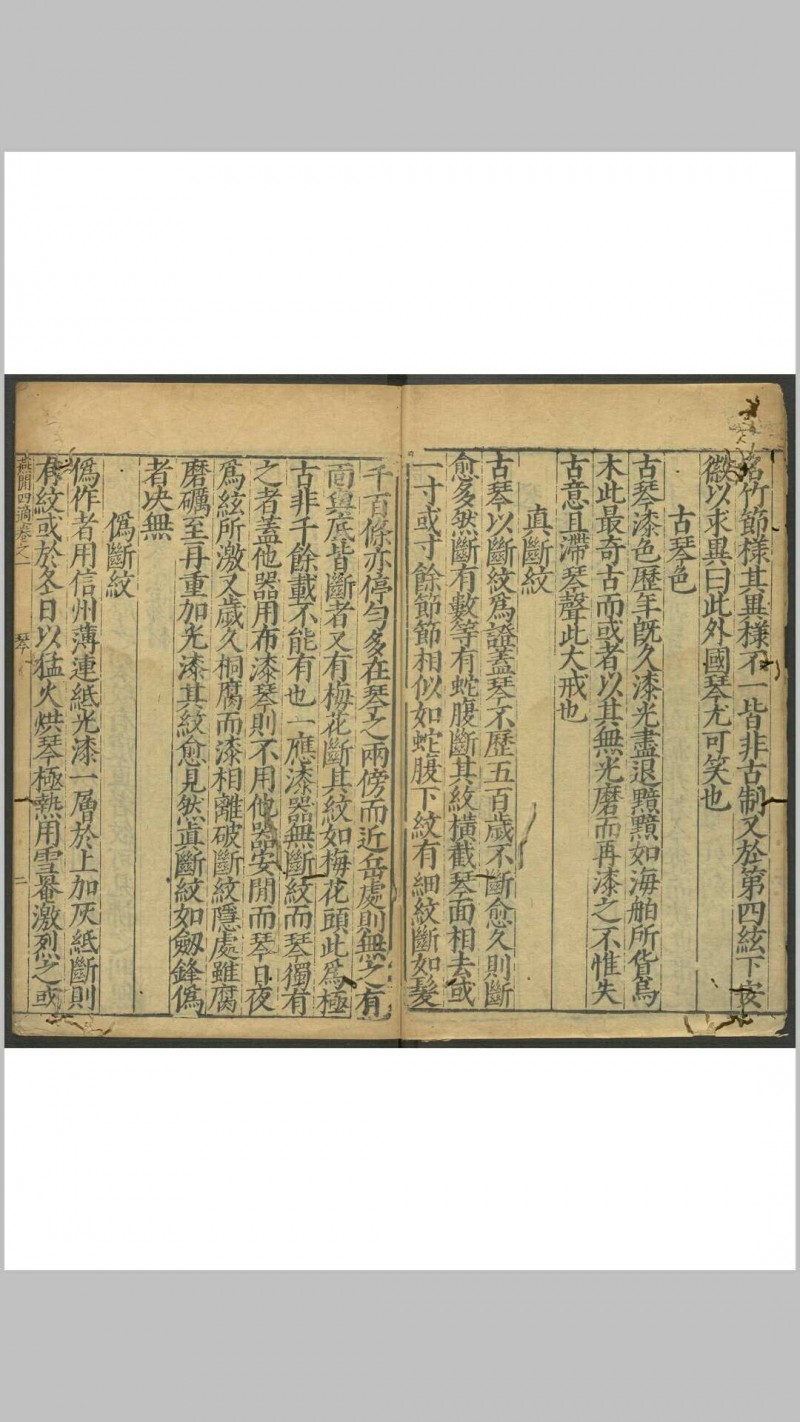 名竹節様其異様不一皆非古制又於第四絃下安
徽以求異曰此外國琴尤可笑也
古琴色
古琴漆色歷年旣久漆光盡退黯黯如海舶所貨烏
木此最奇古而或者以其無光磨而再漆之不惟失
古意且滯琴聲此大戒也
眞斷紋
古琴以斷紋爲證蓋琴不歷五百歲不斷愈久則斷
愈多然斷有數等有蛇腹斷其紋橫截琴面相去或
一寸或寸餘節節相似如蛇腹下紋有細紋斷如髮
千百條亦停勻多在琴之兩傍而近岳處則無之有
面與底皆斷者又有梅花斷其紋如梅花頭此爲極
古非千餘載不能有也一應漆器無斷紋而琴獨有
之者蓋他器用布漆琴則不用他器安閒而琴日夜
爲絃所激又歲久桐腐而漆相離破斷紋隱處雖腐
磨礪至再重加光漆其紋愈見然眞斷紋如劔鋒僞
者決無
僞斷紋
僞作者用信州薄連紙光漆一層於上加灰紙斷則
有紋或於冬日以猛火烘琴極熱用雪罨激烈之或
燕閒四適卷之一 琴 二